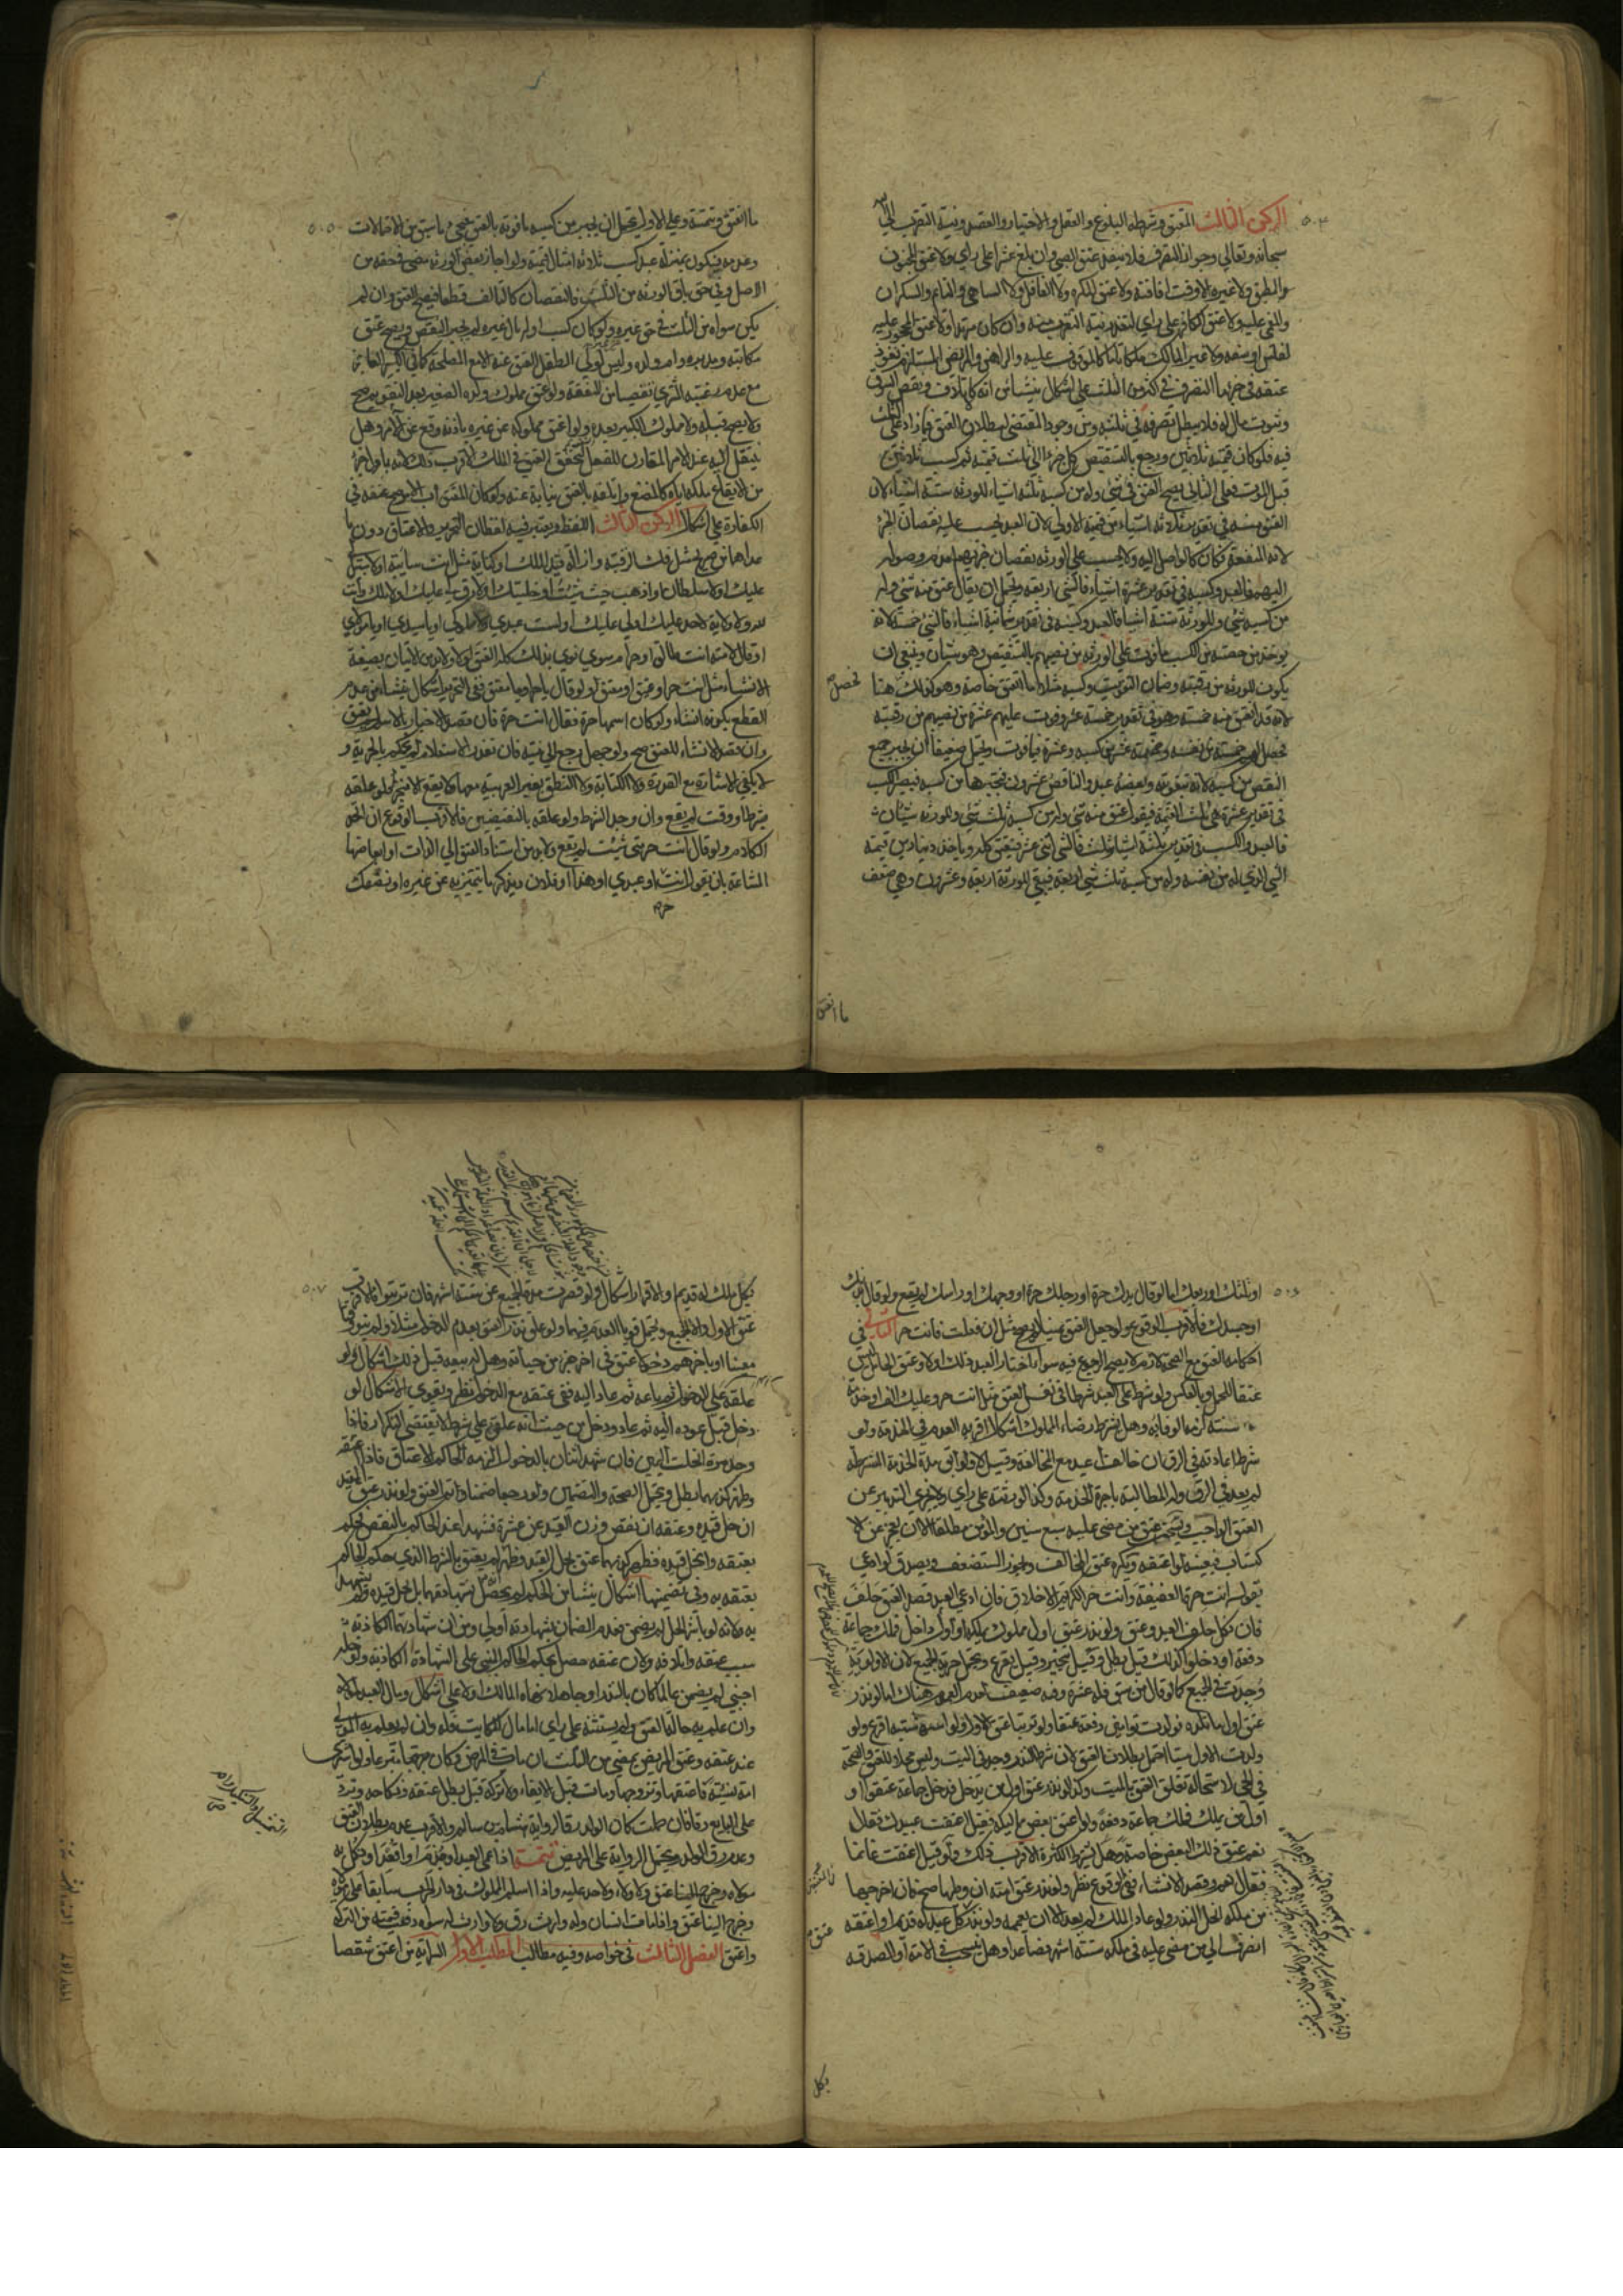 ٥٠٤
الركن الثالث المعتق وشرطه البلوغ والعقل والاختيار والقصد ونية التقرب الى الله
سبحانه وتعالى وجواز التصرف فلا ينفذ عتق الصبي وان بلغ عشرا على راي ولا عتق المجنون
المطبق ولا غيره الا وقت افاقته ولا عتق المكره ولا الغافل ولا الساهي والنائم والسكران
والمغمى عليه ولا عتق الكافر على راي لتعذر نية التقرب منه وان كان مرتدا ولا عتق المحجور عليه
لفلس او سفه ولا غير المالك ملكا تاما كالموقوف عليه والراهن والمريض المستلزم نفوذ
عتقه في جزء ما التصرف في اكثر من الثلث على اشكال ينشأ من انه كالاتلاف ونقص السوق
وتفويت ماله فلا يبطل تصرفه في ثلثه ومن وجود المقتضي لبطلان العتق فيما زاد على الثلث
فيه فلو كان قيمته ثلاثين ورجع بالتشقيص كل جزء الى ثلث قيمته ثم كسب ثلاثين
قبل الموت فعلى الثاني يصح العتق في شيء وله من كسبه ثلثة اشياء وللورثه ستة اشياء لان
العتق منه في تقدير ثلاثة اشياء من قيمة الاولى لان العبد يحسب عليه نقصان الجزء
لانه لمنفعته فكان كالواصل اليه ولا يحسب على الورثه نقصان جزئهم لعدم وصوله
اليهم فالعبد وكسبه في تقدير عشرة اشياء فالشيء اربعة ويحتمل ان يقال عتق منه شيء وله
من كسبه شيء وللورثة ستة اشياء فالعبد وكسبه في تقدير ثمانية اشياء فالشيء خمسة لانه
يؤخذ من حصته من الكسب ما فوت على الورثه من نصيبهم بالتشقيص وهو شيئان وينبغي ان
يكون للورثه من رقبته وضمان التفويت وكسبه مثلا ما انعتق خاصة وهو كذلك هنا
لانه قد انعتق منه خمسة وهو في تقدير خمسة عشر وفوت عليهم عشرة من نصيبهم من رقبته
تحصل لهم خمسة من نفسه وخمسة عشر من كسبه وعشرة بما فوت ويحتمل ضعيفا ان يجبر جميع
النقص من كسبه لانه بتفويته وبعضه عبد والناقص عشرون فيجبرها من كسبه فيصير الكسب
في تقدير عشرة هي ثلث القيمة فيقول عتق منه شيء وله من كسبه ثلث شيء وللورثه شيئان
فالعبد والكسب في تقدير ثلثة اشياء وثلث فالشيء اثنى عشر فينعتق كله وياخذ دينارين قيمة
الشيء الذي له من نفسه وله من كسبه ثلث شيء اربعة فيبقى للورثة اربعة وعشرون وهي ضعف
ما انعتق
٥٠٥
ما انعتق وتتمته وعلى الاول يحتمل ان يجبر من كسبه ما فوته بالعتق فيجيء ما سبق من الاحتمالات
وعدمه فيكون بمنزلة عبد كسب ثلاثة امثال قيمته ولو اجاز بعض الورثه مضى في حقه من
الاصل وفي حق باقي الورثه من الثلث والنقصان كالتالف قطعا فيصح العتق وان لم
يكن سواه من الثلث في حق غيره ولو كان كسب اوله مال غيره لم يجبر النقص ويصح عتق
مكاتبه ومدبره وام ولده وليس لولي الطفل العتق عنه الا مع المصلحة كما في الكبير العاجز
مع عدم رغبة المشتري تقصيا من النفقة ولو عتق مملوك ولده الصغير بعد التقويم صح
ولا يصح قبله ولا مملوك الكبير بعده ولو اعتق مملوكه عن غيره باذنه وقع عن الآمر وهل
ينتقل اليه عند الامر المقارن للفعل ليتحقق العتق في الملك الاقرب ذلك لانه باول جزء
من الايقاع ملكه اياه كالمضع وابلغه بالعتق نيابة عنه ولو كان المعتق اب الامر صح عتقه في
الكفارة على اشكال الركن الثالث اللفظ ويعتبر فيه لفظان التحرير والاعتاق دون ما
عداهما من صريح مثل فك الرقبة وازالة قيد الملك او كناية مثل انت سائبة او لا سبيل لي
عليك او لا سلطان او اذهب حيث شئت او خليتك او لا رق لي عليك او لا ملك وانت
لله ولا ولاية لاحد عليك او لي عليك او لست عبدي ولا مملوكي او يا سيدي او يا مولاي
او قال لامته انت طالق او حرام سوى نوى بذلك كله العتق او لا ولا بد من الاتيان بصيغة
الانشاء مثل انت حر او عتيق او معتق ولو قال يا حر او يا معتق ففي التحرير اشكال ينشأ من عدم
القطع بكونه انشاء ولو كان اسمها حرة فقال انت حرة فان قصد الاخبار بالاسم لم يعتق
وان قصد الانشاء للعتق صح ولو جهل رجع الى نيته فان تعذر الاستعلام لم يحكم بالحرية و
لا يكفي الاشارة مع القدرة ولا الكتابة ولا النطق بغير العربية معها ولا يقع الا منجزا فلو علقه
بشرط او وقت لم يقع وان وجد الشرط ولو علقه بالنقيضين فالاقرب الوقوع ان اتحد
الكلام ولو قال انت حر متى شئت لم يقع ولا بد من اسناد العتق الى الذات او ابعاضها
المشاعة بان يقول انت او عبدي او هذا او فلان ويذكر ما يتميز به عن غيره او نصفك
حر
٥٠٦
او ثلثك او ربعك اما لو قال يدك حرة او رجلك حرة او وجهك او راسك لم يقع ولو قال بدنك
او جسدك فالاقرب الوقوع ولو جعل العتق يمينا لم يصح مثل ان فعلت فانت حر الثاني في
احكامه العتق مع الصحة لازم لا يصح الرجوع فيه سواء اختار العبد ذلك او لا وعتق الحامل ليس
عتقا للحمل وبالعكس ولو شرط على العبد شرطا في نفس العتق مثل انت حر وعليك الف او خدمة
سنة لزمه الوفاء به وهل يشترط رضاء المملوك اشكال اقربه العدم في الخدمة ولو
شرط اعادته في الرق ان خالف اعيد مع المخالفة وقيل لا ولو ابق مدة الخدمة المشترطة
لم يعد في الرق وله المطالبة باجرة الخدمة وكذا لورثته على راي ولا يجزي التدبير عن
العتق الواجب ويستحب عتق من مضى عليه سبع سنين والمؤمن مطلقا الا ان يعجز عن الا
كتساب فيعينه لو اعتقه ويكره عتق المخالف ويجوز المستضعف ويصدق لو ادعى
بقوله انت حرة العفيفة وانت حر الكريم الاخلاق فان ادعى العبد قصد العتق حلف
فان نكل حلف العبد وعتق ولو نذر عتق اول مملوك يملكه او اول داخل فملك جماعة
دفعة او دخلوا كذلك قيل يبطل وقيل يتخير وقيل يقرع ويحتمل حرية الجميع لان الاولوية
وجدت في الجميع كما لو قال من سبق فله عشرة وفيه ضعف لعدم العموم هناك اما لو نذر
عتق اول ما تلده فولدت توامين دفعة عتقا ولو ترتبا عتق الاول ولو اشتبه اقرع ولو
ولدت الاول ميتا احتمل بطلان العتق لان شرط النذر وجد في الميت وليس محلا للعتق والصحة
في الحي لاستحالة تعلق العتق بالميت وكذا لو نذر عتق اول من يدخل فدخل جماعة عتقوا او
اول من يملك فملك جماعة دفعة ولو اعتق بعض مماليكه فقيل اعتقت عبيدك فقال
نعم عتق ذلك البعض خاصة وهل يشترط الكثرة الاقرب ذلك ولو قيل اعتقت غانما
فقال نعم وقصد الانشاء ففي الوقوع نظر ولو نذر عتق امته ان وطئها صح فان اخرجها
من ملكه انحل النذر ولو عاد الملك لم يعد الا ان يعممه ولو نذر كل عبد له قديم او اعتقه
انصرف الى من مضى عليه في ملكه ستة اشهر فصاعدا وهل ينسحب في الامة او الصدقة
عتق
بكل
٥٠٧
بكل ملك له قديم او الاقرار اشكال ولو قصرت مدة الجميع عن ستة اشهر فان ترتبوا فالاقرب
عتق الاول والا الجميع ويحتمل قويا العدم فيهما ولو علق نذر العتق بعدم الدخول مثلا ولم ينو وقتا
معينا او باخرهم دخولا عتق في اخر جزء من حياته وهل له بيعه قبل ذلك اشكال ولو
علقه على الدخول ثم باعه ثم عاد اليه ففي عتقه مع الدخول نظر ويقوى الاشكال لو
دخل قبل عوده اليه ثم عاد ودخل من حيث انه علق على شرط لا يقتضي التكرار فاذا
وجد مرة انحلت اليمين فان شهد اثنان بالدخول الزمه الحاكم الاعتاق فاذا اعتقه
وظهر كذبهما بطل ويحتمل الصحة والتضمين ولو رجعا ضمنا وتم العتق ولو نذر عتق المقيد
ان حل قيده وعتقه ان نقص وزن القيد عن عشرة فشهدا عند الحاكم بالنقص فحكم
بعتقه وانحل قيده فظهر كذبهما عتق بحل القيد وظهر انه لم يعتق بالشرط الذي حكم الحاكم
بعتقه به وفي تضمينهما اشكال ينشأ من الحكم لم يحصل بشهادتهما بل بحل قيده ولم يشهد
به ولانه لو باشر الحل لم يضمن فعدم الضمان بشهادته اولى ومن ان شهادتهما الكاذبة
سبب عتقه واتلافه ولان عتقه حصل بحكم الحاكم المبني على الشهادة الكاذبة ولو حله
اجنبي لم يضمن عالما كان بالنذر او جاهلا نهاه المالك او لا على اشكال ومال العبد لمولاه
وان علم به حال العتق ولم يستثنه على راي اما مال الكتابة فله وان لم يعلم به المولى
عند عتقه وعتق المريض يمضي من الثلث ان مات في المرض وكان متبرعا ولو اشترى
امة نسيئة فاعتقها وتزوجها ومات قبل الايفاء ولا تركة قيل يبطل عتقه ونكاحه وترد
على البايع رقا فان حملت كان الولد رقا لرواية هشام بن سالم والاقرب عدم بطلان العتق
وعدم رق الولد وتحمل الرواية على المريض تتمة اذا عمي العبد او جذم او اقعد او نكل به
مولاه وخرج الينا عتق ولا ولاء لاحد عليه واذا اسلم المملوك في دار الحرب سابقا على مولاه
وخرج الينا عتق واذا مات انسان وله وارث رق ولا وارث له سواه دفع قيمته من التركه
واعتق الفصل الثالث في خواصه وفيه مطالب المطلب الاول السراية من اعتق شقصا